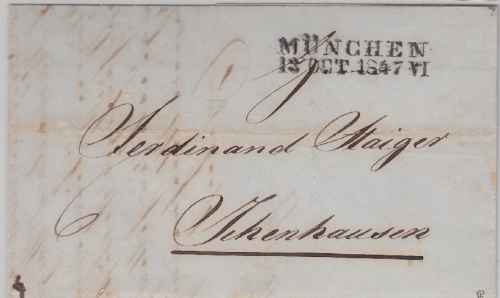 MÜNCHEN
12 OCT. 1847 VI
Ferdinand Staiger
Ichenhausen